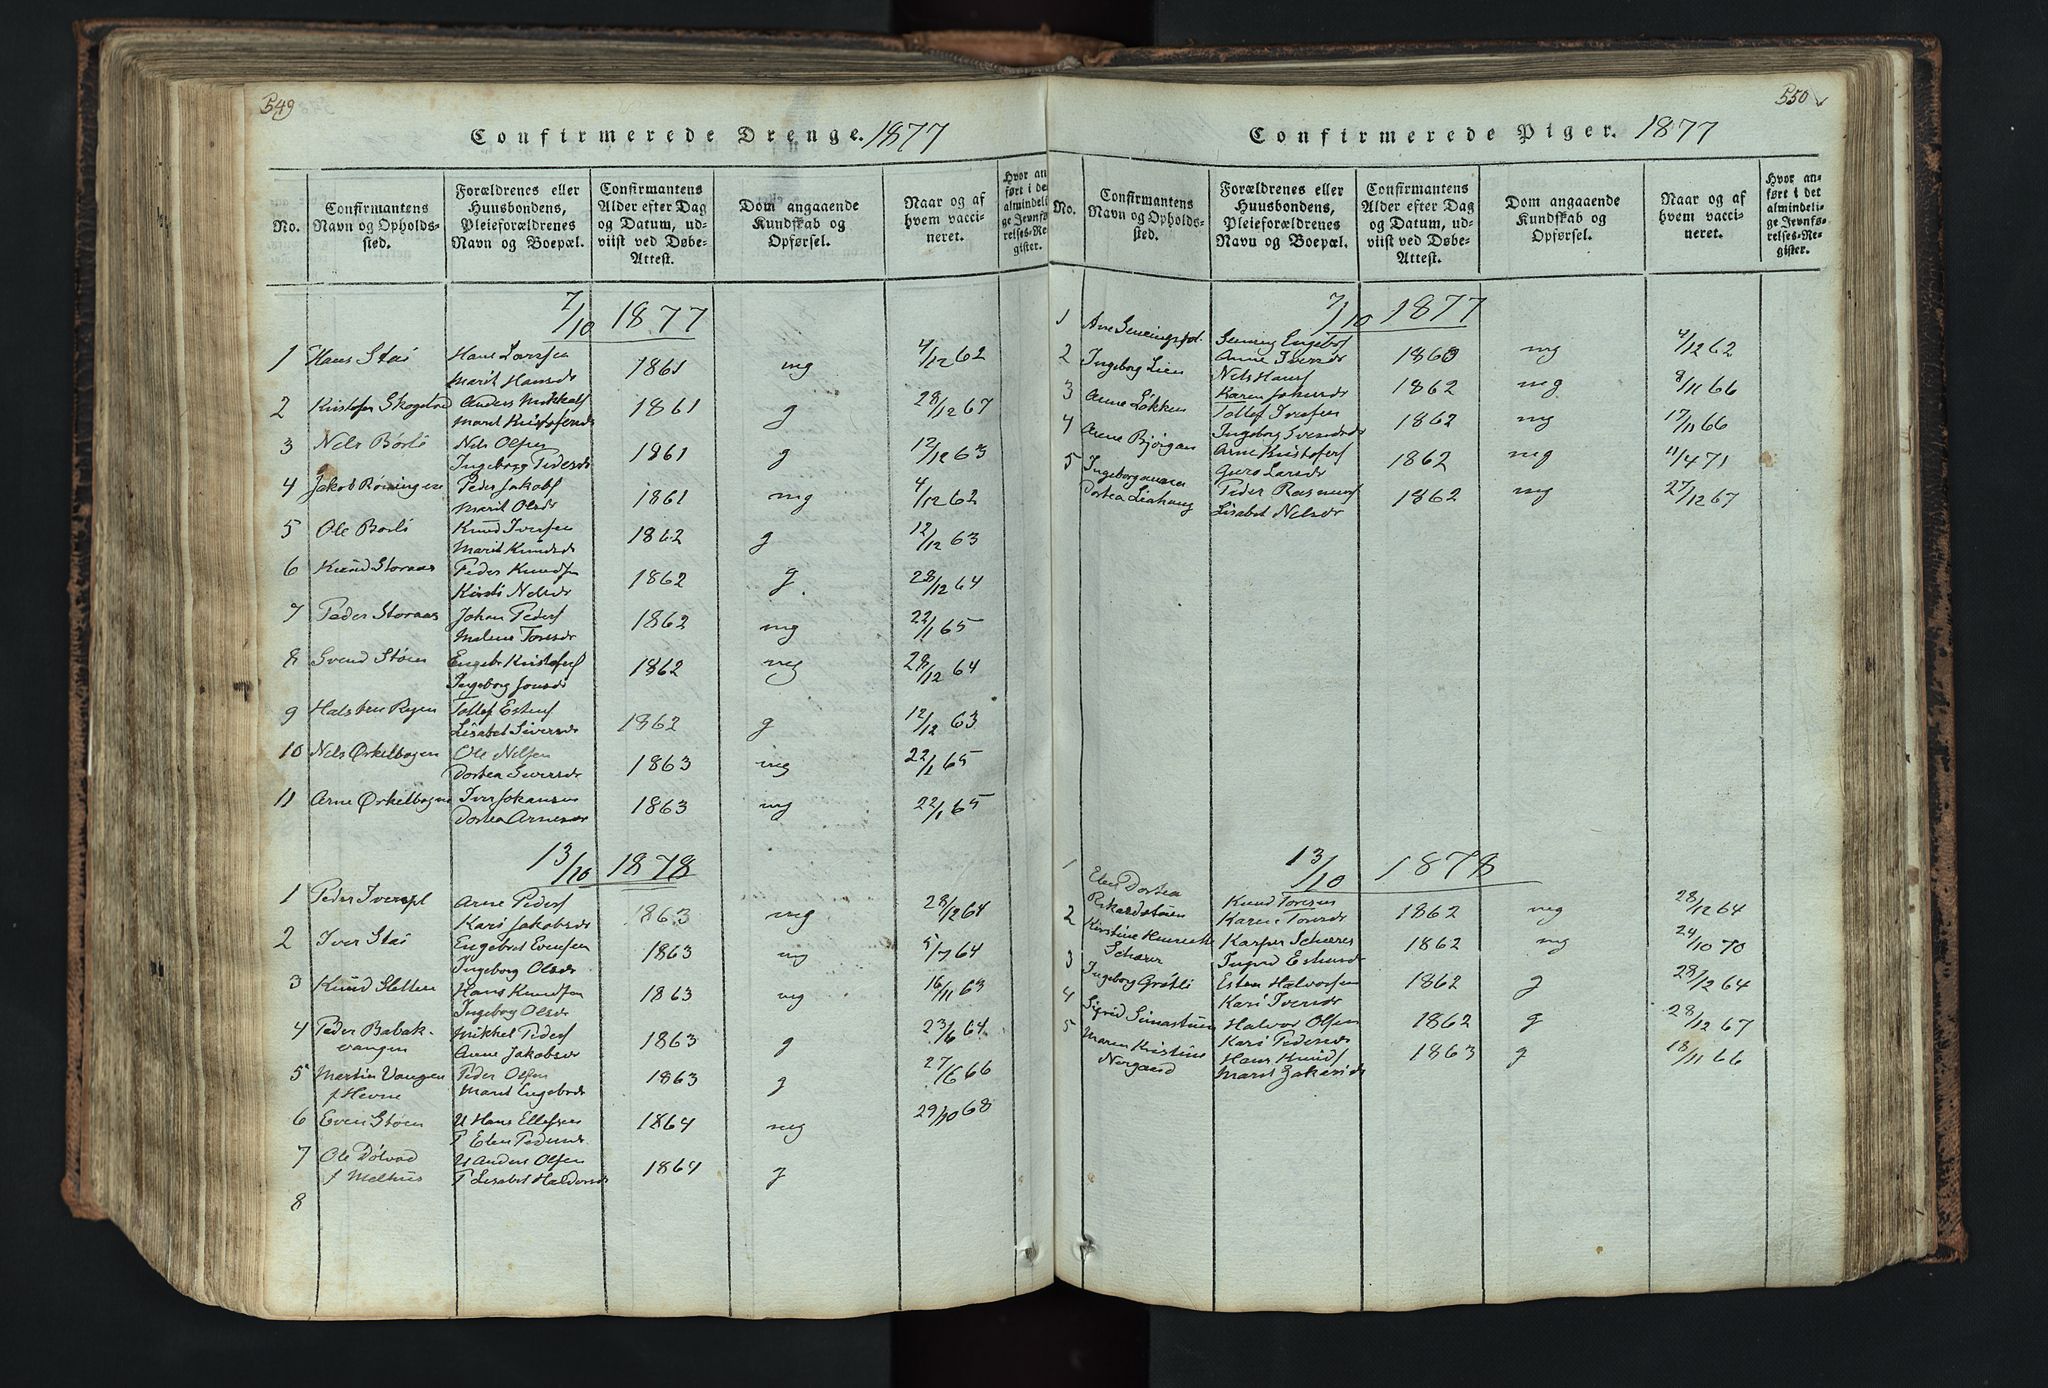 549
Confirmerede Drenge. 1877
No.
Confirmantens Navn og Opholdssted.
Forældrenes eller Huusbondens, Pleieforældrenes Navn og Boepæl.
Confirmantens Alder efter Dag og Datum, udviist ved Døbe-Attest.
Dom angaaende Kundskab og Opførsel.
Naar og af hvem vaccineret.
Hvor anført i det almindelige Jevnførelses-Register.
7/10 1877
1 Hans Stai Hans Larssen 1861 mg 4/12 62
Marit Hansdr
2 Kristofer Skogstad Anders Mikkels 1861 g 28/12 67
Marit Kristofersdr
3 Nels Borli Nils Olsen 1861 g 12/12 63
Ingeborg Pedersdr
4 Jakob Røningen Peder Jakobs 1861 mg 4/12 62
Marit Olsdr
5 Ole Borli Knud Iversen 1862 g 12/12 63
Marit Knudsdr
6 Knud Storaas Peder Knudsen 1862 g 28/12 64
Kirsti Nelsdr
7 Peder Storaas Johan Peders 1862 mg 22/1 65
Malene Toresdr
8 Svend Støen Engebr Kristofers 1862 mg 28/12 64
Ingeborg Jonsdr
9 Halsten Ryen Tollef Estens 1862 g 12/12 63
Lisabet Siversdr
10 Nels Ørkelbogen Ole Nelsen 1863 mg 22/1 65
Dortea Siversdr
11 Arne Ørkelbogen Iver Johansen 1863 mg 22/1 65
Dortea Arnesdr
13/10 1878
1 Peder Iverspl Arne Peders 1863 mg 28/12 64
Kari Jakobsdr
2 Iver Stai Engebret Evensen 1863 mg 5/7 64
Ingeborg Olsdr
3 Knud Sletten Hans Knudsen 1863 mg 16/11 63
Ingeborg Olsdr
4 Peder Babak- Mikkel Peders 1863 g 23/6 64
vangen Anne Jakobsdr
5 Martin Vangen Peder Olsen 1863 g 27/6 66
f Hevne Marit Engebrdr
6 Even Støen U Hans Ellefsen 1864 mg 29/10 68
P Elen Pedersdr
7 Ole Dølvad U Anders Olsen 1864 g
f Melhus P Lisabet Haldorsdr
8
550
Confirmerede Piger. 1877
No.
Confirmantens Navn og Opholdssted.
Forældrenes eller Huusbondens, Pleieforældrenes Navn og Boepæl.
Confirmantens Alder efter Dag og Datum, udviist ved Døbe-Attest.
Dom angaaende Kundskab og Opførsel.
Naar og af hvem vaccineret.
Hvor anført i det almindelige Jevnførelses-Register.
7/10 1877
1 Gunning Engebrs 1860 mg 4/12 62
Anne Iversdr
2 Ingeborg Lien Nels Hans 1862 mg 8/11 66
Karen Johnsdr
3 Anne Løkken Tollef Iversen 1862 mg 17/11 66
Ingeborg Svendsdr
4 Anne Bjørgan Arne Kristofers 1862 mg 11/4 71
Guro Larsdr
5 Ingeborganna Peder Rasmus 1862 mg 27/12 67
Dortea Liahaug Lisabet Nelsdr
13/10 1878
1 Elen Dortea Knud Toresen 1862 mg 28/12 64
Rikardstuen Karen Toresdr
2 Kirstine Henriette Kasper Schærer 1862 mg 24/10 70
Schærer Ingrid Estensdr
3 Ingeborg Grøtli Esten Halvorsen 1862 g 28/12 64
Kari Iversdr
4 Sigrid Simastuen Halvor Olsen 1862 g 28/12 67
Kari Pedersdr
5 Maren Kristine Hans Knuds 1863 g 18/11 66
Norgaard Marit Zakarisdr